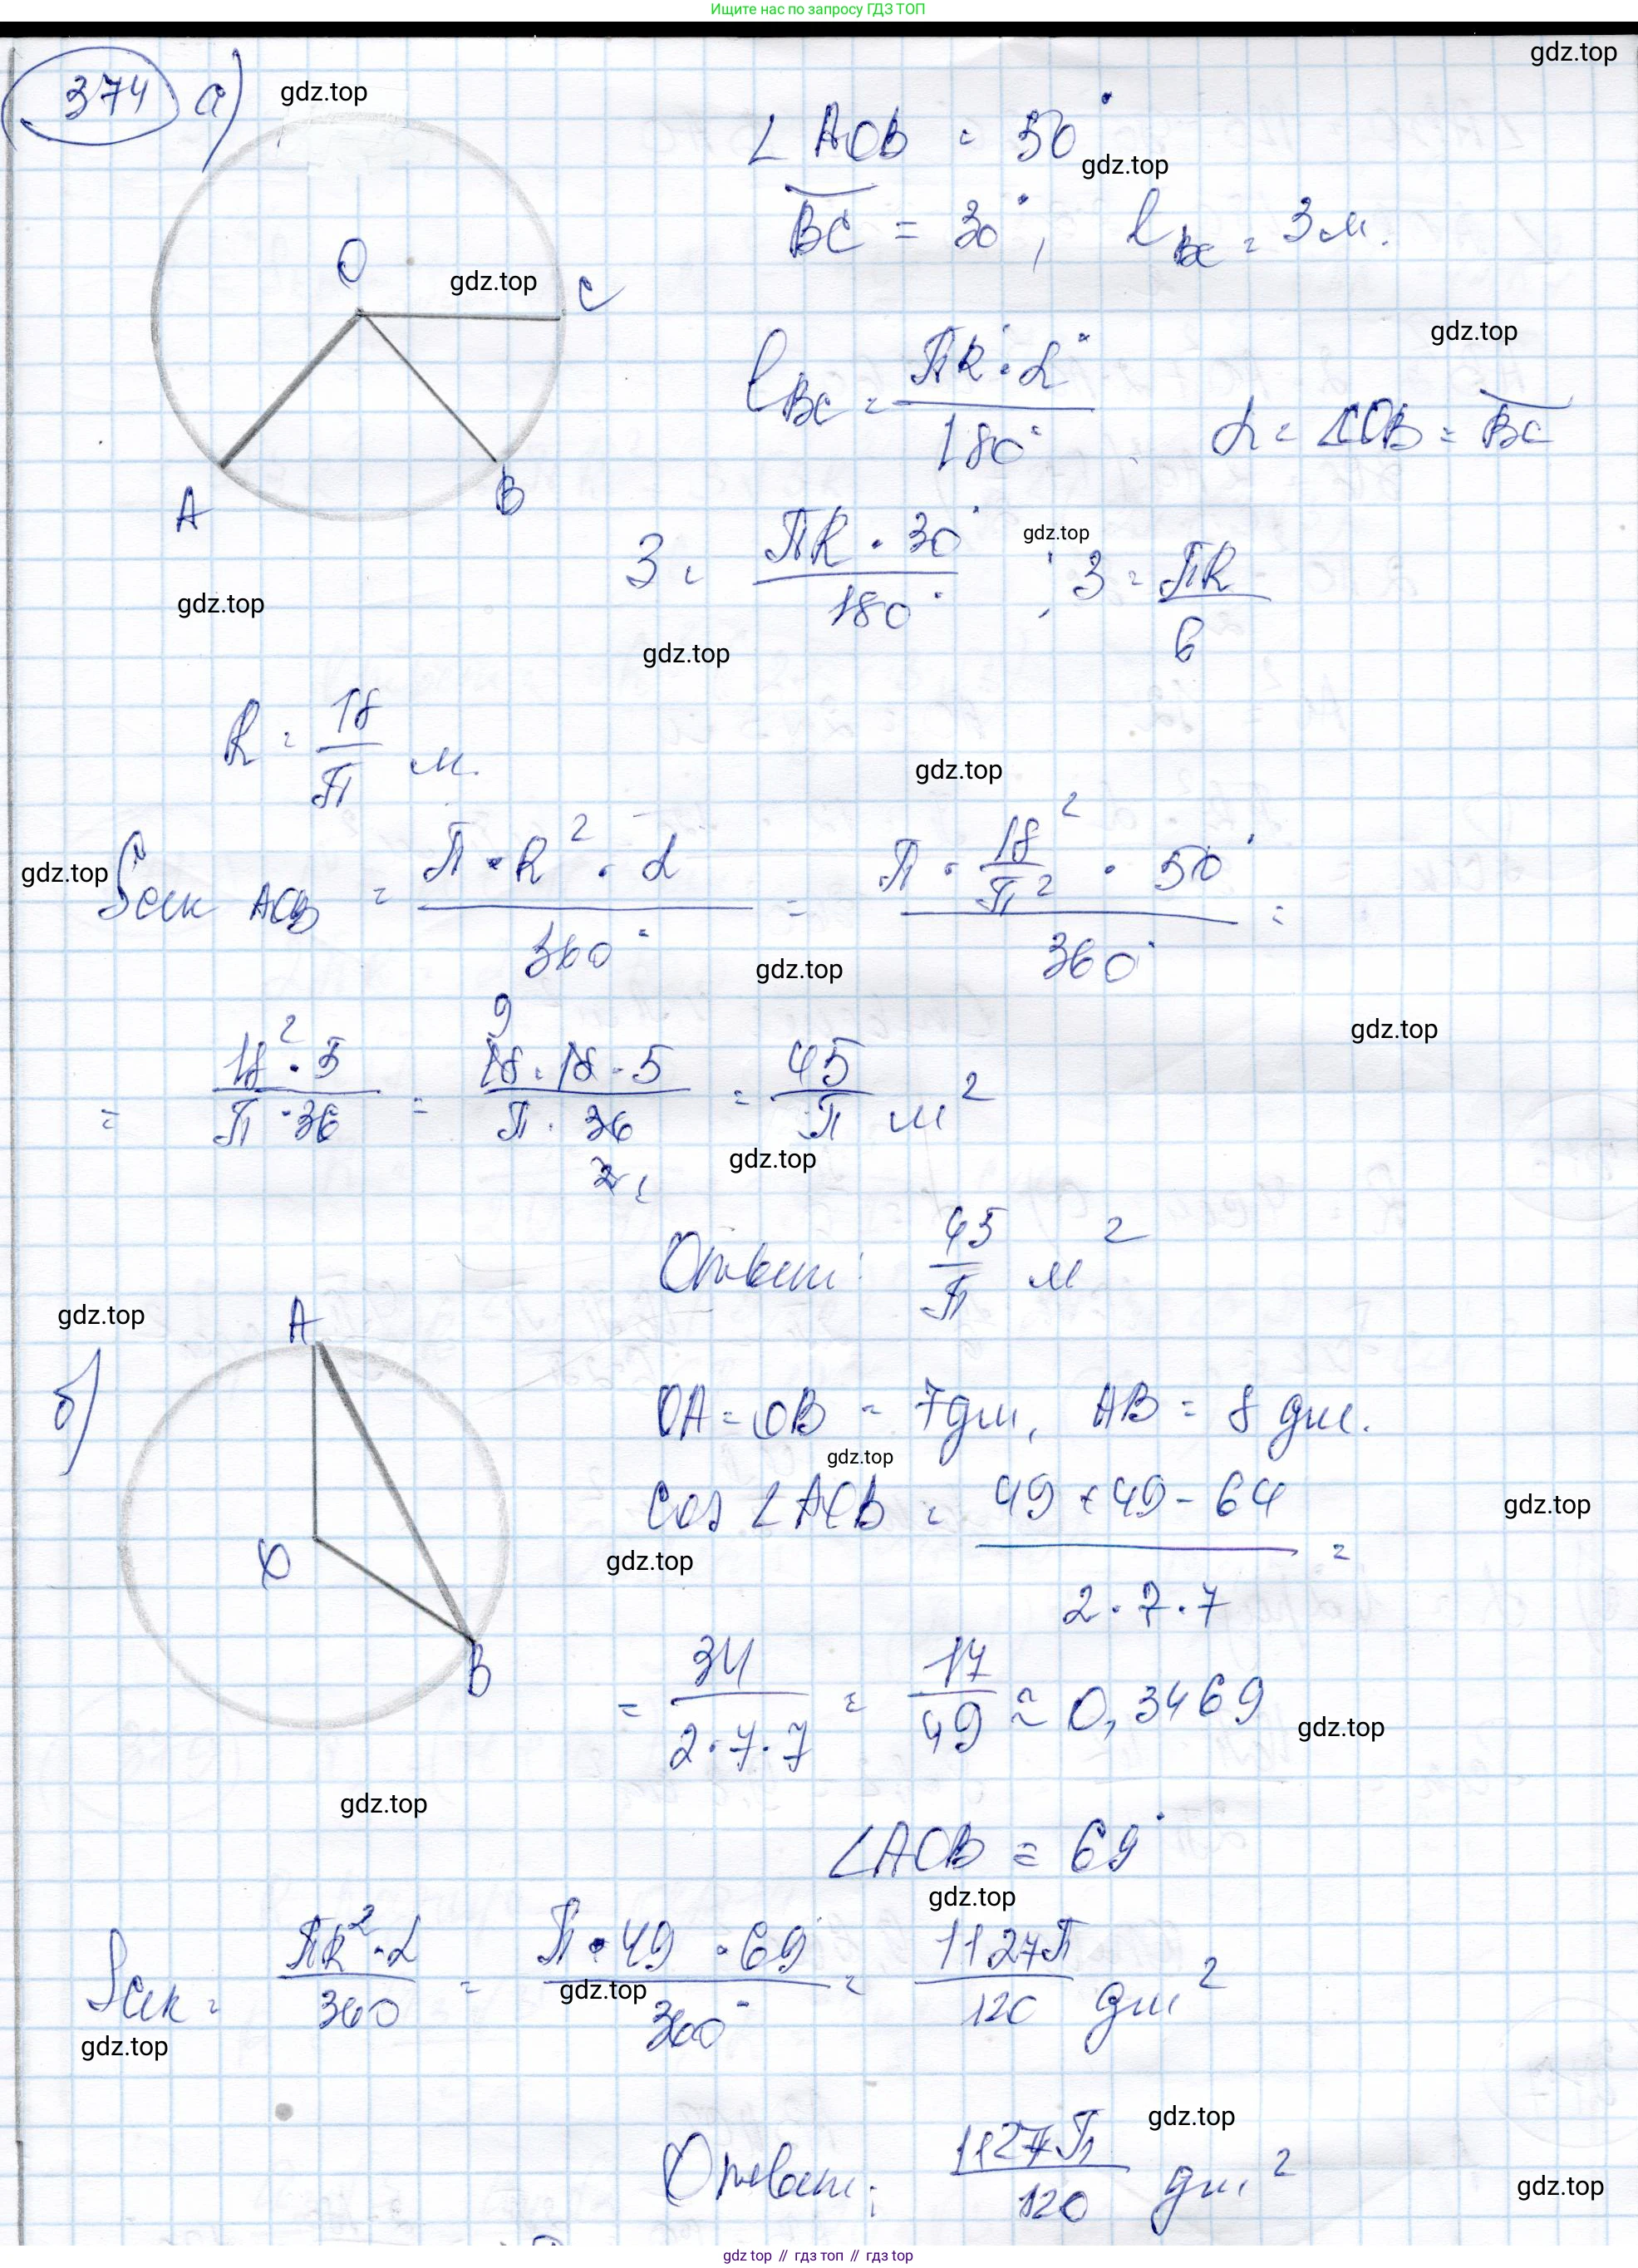 Ищите нас по запросу ГДЗ ТОП
gdz.top
374 а)
gdz.top
∠ AOB = 50°
gdz.top
BC = 30°, l BC = 3 м.
O
gdz.top
C
gdz.top
l BC = ПR · α° / 180° α = ∠COB = BC
A
B
3 = ПR · 30° / 180° ; 3 = ПR / 6
gdz.top
gdz.top
gdz.top
R = 18 / П м.
gdz.top
gdz.top
Sсек AOB = П · R² · α / 360° = П · 18² / П² · 50° / 360° =
gdz.top
gdz.top
= 18² · 5 / П · 36 = 9 18 · 18 · 5 / П · 36 2 1 = 45 / П м²
gdz.top
Ответ: 45 / П м²
gdz.top
A
б)
OA = OB = 7 дм, AB = 8 дм.
gdz.top
cos ∠AOB = 49 + 49 - 64 / 2 · 7 · 7 =
gdz.top
gdz.top
O
B
= 34 / 2 · 7 · 7 = 17 / 49 ≈ 0,3469
gdz.top
gdz.top
∠AOB = 69°
gdz.top
Sсек = ПR² · α / 360 = П · 49 · 69 / 360° = 1127П / 120 дм²
gdz.top
gdz.top
gdz.top
Ответ: 1127П / 120 дм²
gdz.top
gdz.top // гдз топ // гдз.top